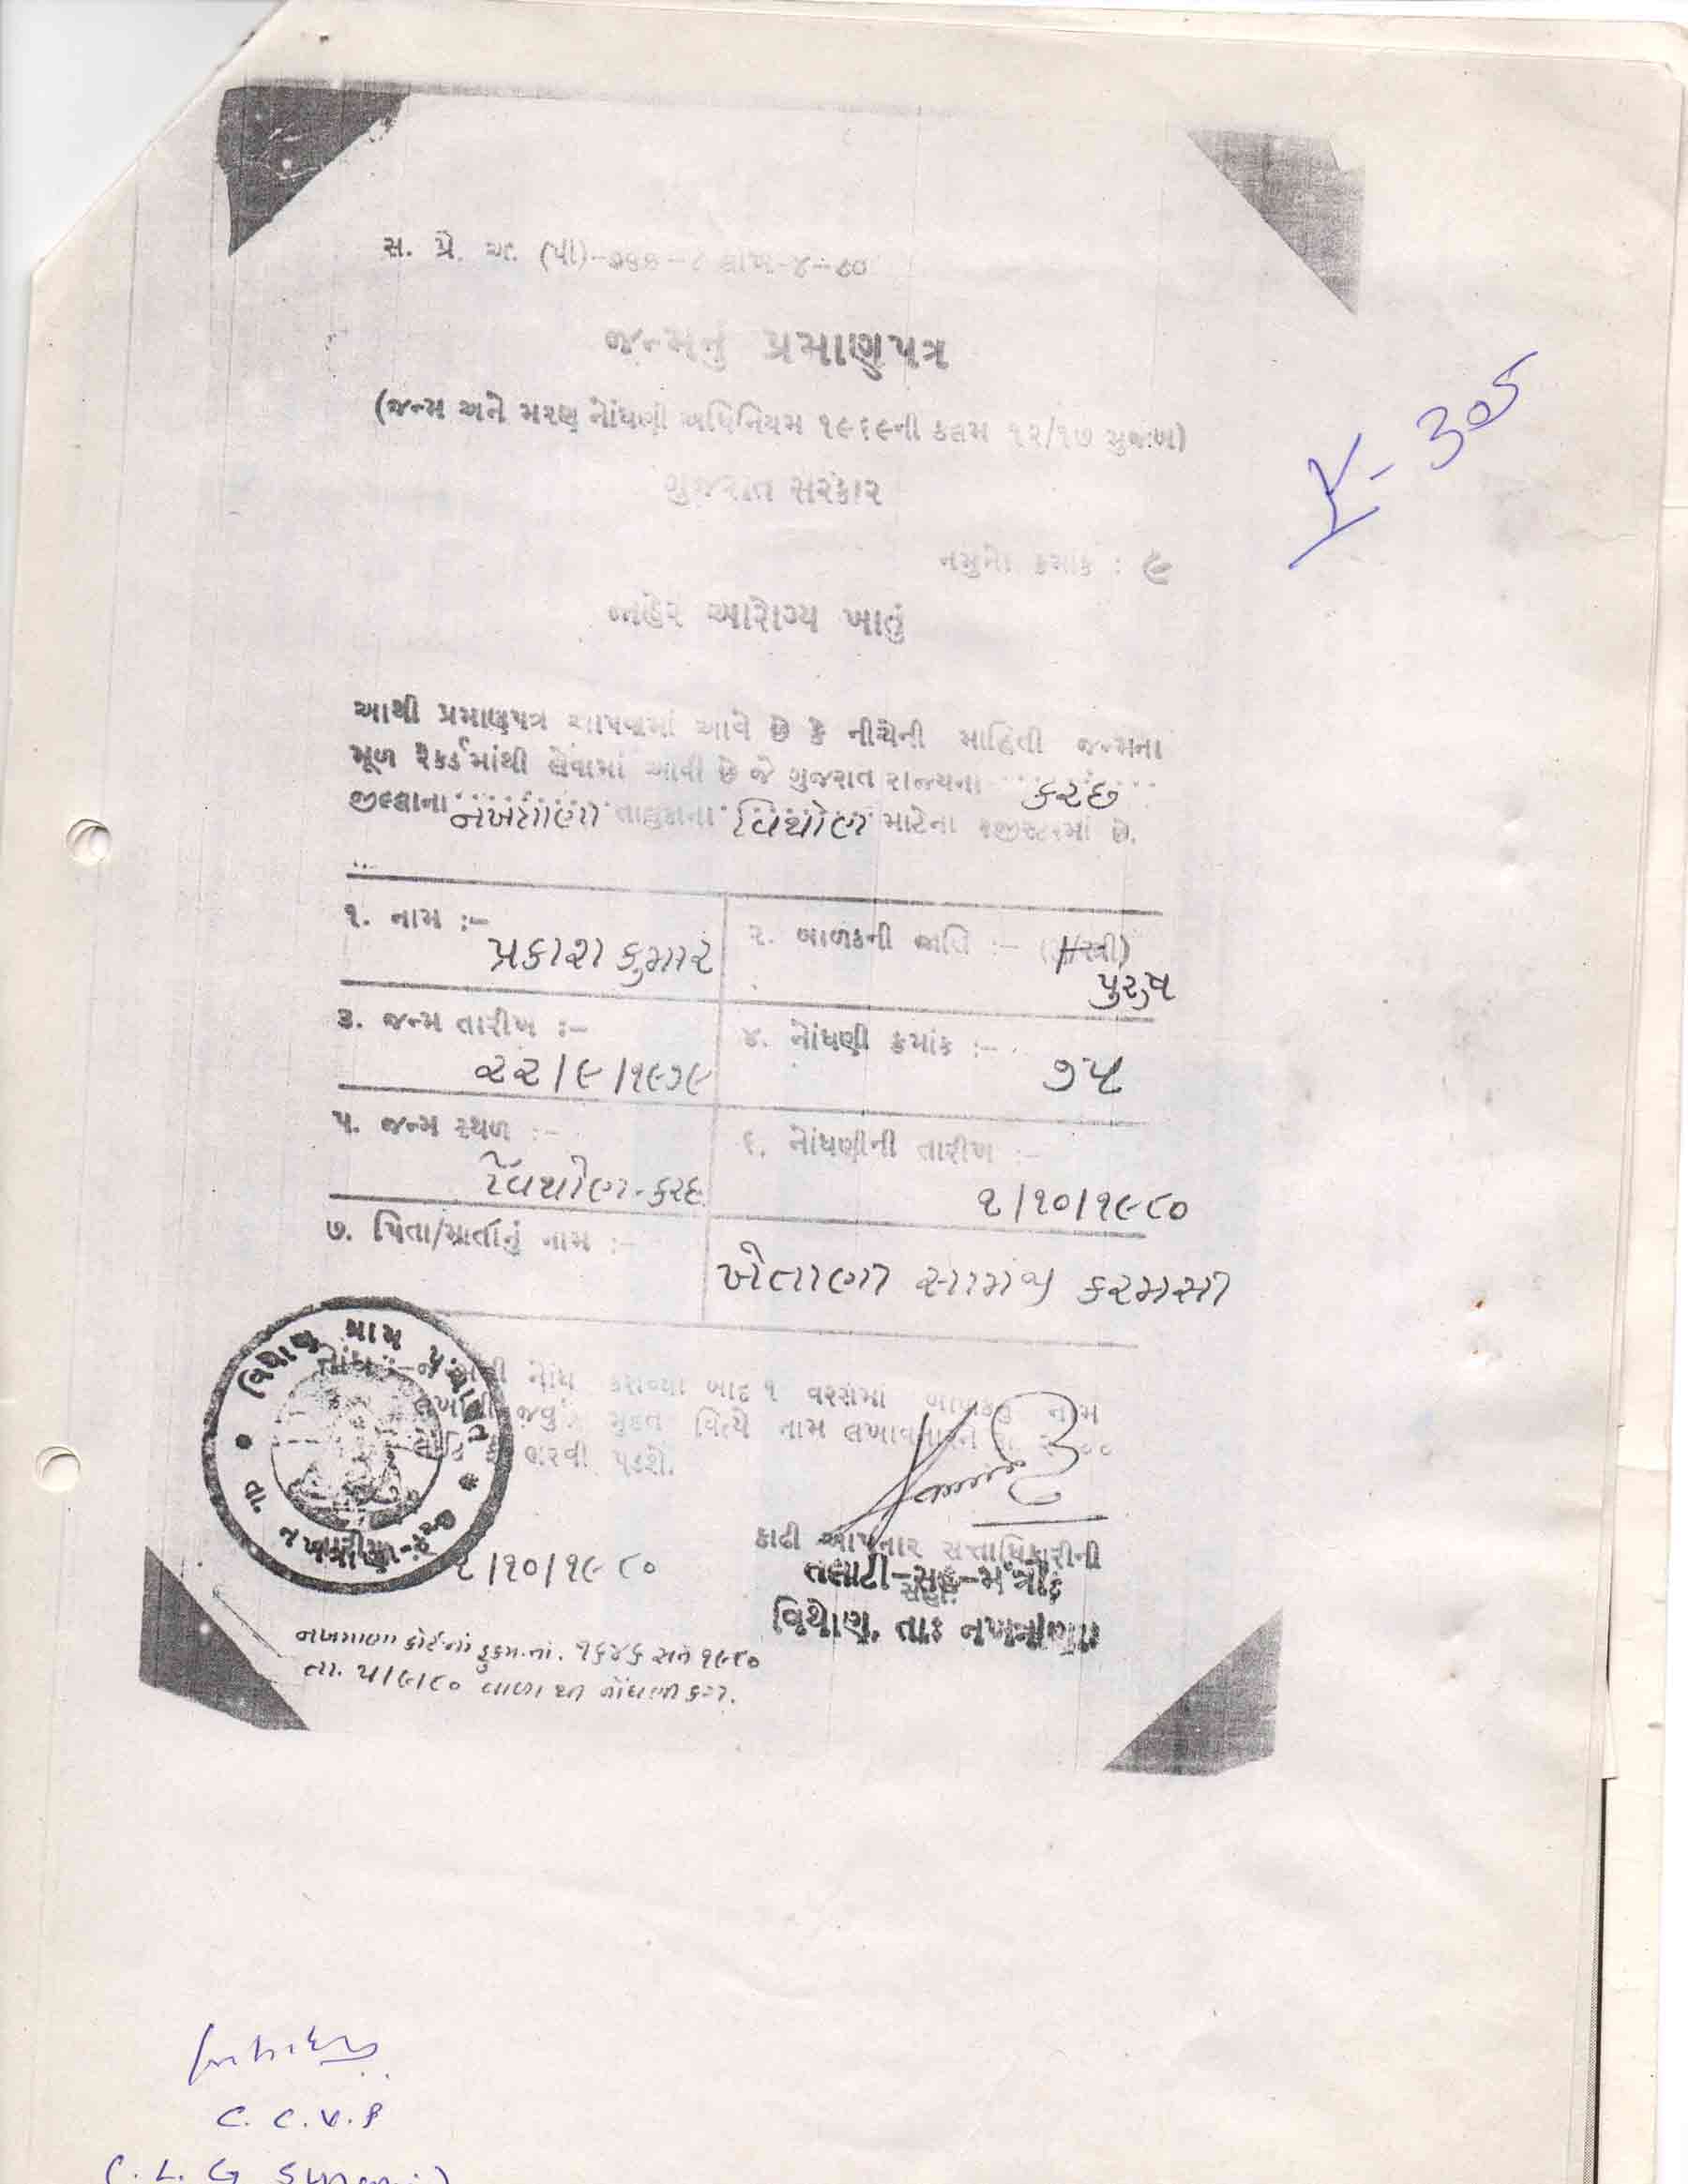 સ. પ્રે. અ. (પી)-૭૬૬-૮ લાખ-૪-૮૦
જન્મનું પ્રમાણપત્ર
(જન્મ અને મરણ નોંધણી અધિનિયમ ૧૯૬૯ની કલમ ૧૨/૧૭ મુજબ)
ગુજરાત સરકાર
K-305
નમુનો ક્રમાંક : ૯
જાહેર આરોગ્ય ખાતું
આથી પ્રમાણપત્ર આપવામાં આવે છે કે નીચેની માહિતી જન્મના
મૂળ રેકર્ડમાંથી લેવામાં આવી છે જે ગુજરાત રાજ્યના કચ્છ
જીલ્લાના નખત્રાણા તાલુકાના વિથોણ માટેના રજીસ્ટરમાં છે.
૧. નામ :- પ્રકાશ કુમાર
૨. બાળકની જાતિ :- (પુ/સ્ત્રી) પુરુષ
૩. જન્મ તારીખ :- ૨૨/૯/૧૯૭૯
૪. નોંધણી ક્રમાંક :- ૭૫
૫. જન્મ સ્થળ :- વિથોણ-કચ્છ
૬. નોંધણીની તારીખ :- ૧/૧૦/૧૯૮૦
૭. પિતા/માતાનું નામ :- ખેતાણી સામજી કરમસી
વિથોણ ગ્રામ પંચાયત
તા. નખત્રાણા-કચ્છ
નોંધ :- નોંધ કરાવ્યા બાદ ૧ વરસમાં બાળકનું નામ
જવું મુદત વિત્યે નામ લખાવનારને
ભરવી પડશે.
૧/૧૦/૧૯૮૦
કાઢી આપનાર સત્તાધિકારીની
સહી.
તલાટી-સહ-મંત્રી
વિથોણ, તાઃ નખત્રાણા
નખત્રાણા કોર્ટનાં હુકમ નાં. ૧૬૪૬ સને ૧૯૮૦
તા. ૫/૯/૮૦ વાળા થી નોંધણી કરી.
C. C. V. P